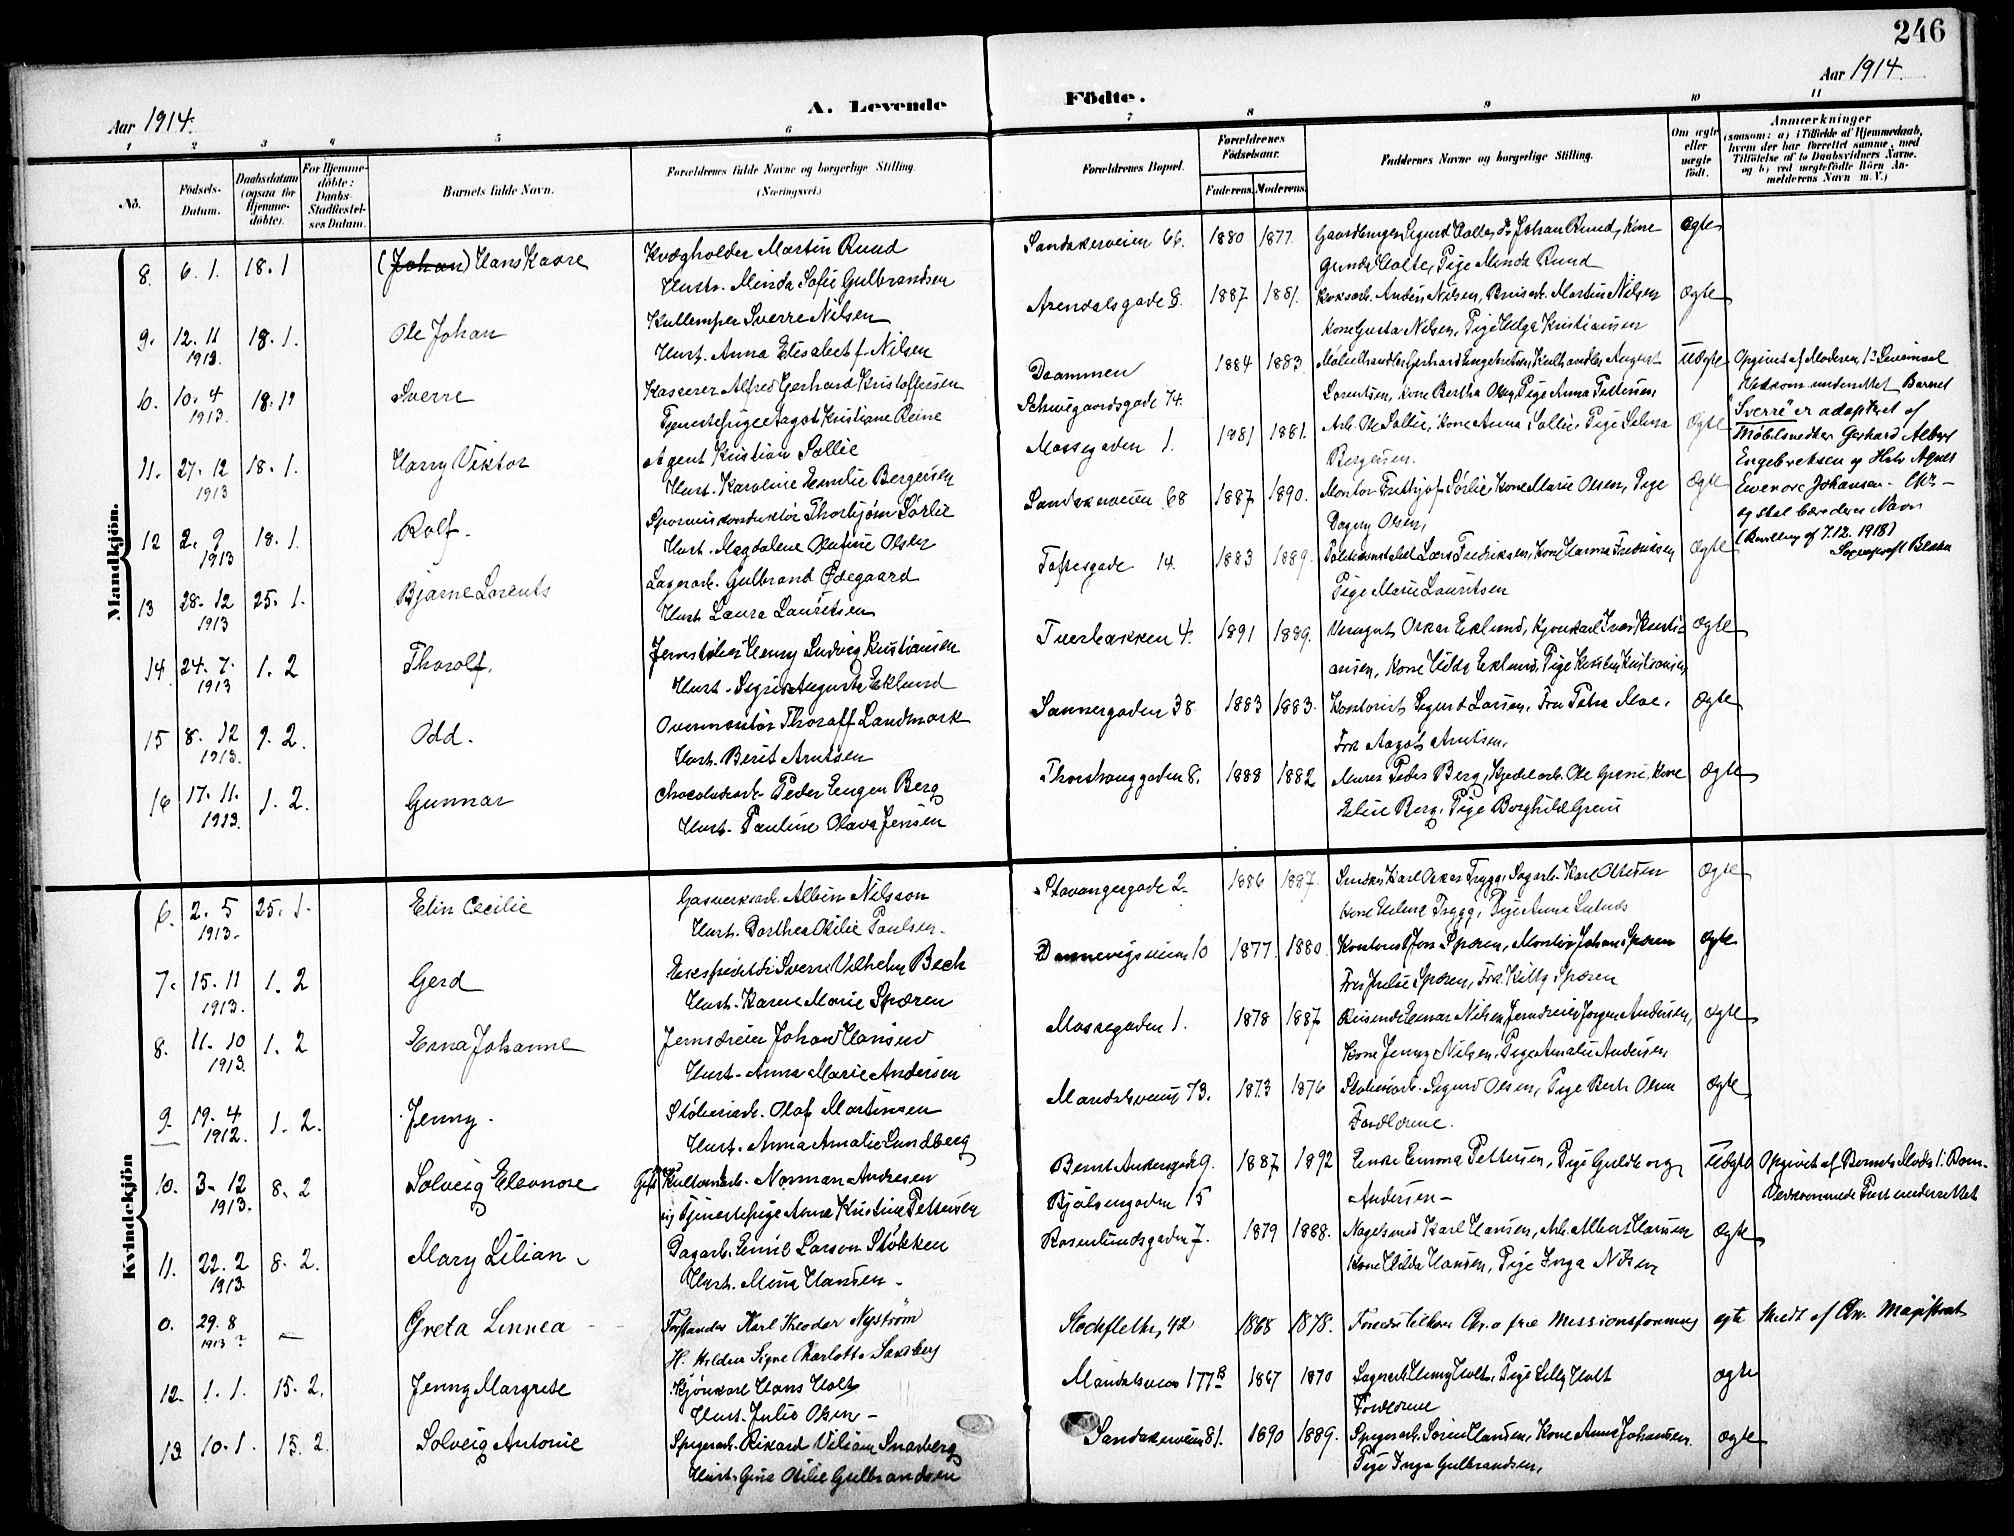 246
Aar 1914.
A. Levende
Fødte.
Aar 1914.
1 2 3 4 5 6 7 8 9 10 11
No.
Fødsels-
Datum.
Daabsdatum
(ogsaa for
Hjemme-
døbte).
For Hjemme-
døbte:
Daabs-
Stadfæstel-
ses Datum.
Barnets fulde Navn.
Forældrenes fulde Navne og borgerlige Stilling.
(Næringsvei.)
Forældrenes Bopæl.
Forældrenes
Fødselsaar.
Faderens. Moderens.
Faddernes Navne og borgerlige Stilling.
Om ægte
eller
uægte
født.
Anmærkninger
(saasom: a) i Tilfælde af Hjemmedaab,
hvem der har forrettet samme, med
Tilføielse af to Daabsvidners Navne,
og b) ved uægtefødte Børn An-
melderens Navn m. V.)
Mandkjön.
8. 6. 1. 18. 1 (Johan) Hans Kaare
Kvægholder Martin Ruud
Hustr. Minda Sofie Gulbrandsen
Sandakerveien 66. 1880 1877.
Johan Ruud, Kone
Gunda Holte, Pige Minda Ruud
Ægte
9. 12. 11 1913. 18. 1. Ole Johan
Sverre Nilsen
Hust. Anna Elisabet f. Nilsen
Arendalsgade 8. 1887 1881.
Anders Nilsen, Martin Nilsen
Kone Gusta Nilsen, Pige Helga Kristiansen
Ægte
10. 4 1913. Sverre
Kasserer Alfred Gerhard Kristoffersen
Tjenestepige Aagot Kristiane Reine
Drammen
Schweigaardsgade 74.
1884 1883.
Gerhard Engebretsen, Kulhandler August
Lorentsen, Kone Bertha Olsen, Pige Anna Pettersen
Uægte
Opgivet af Moderen
underrettet Barnet
"Sverre" er adopteret af
Møbelsnedker Gerhard Albert
Engebretsen og Hstr Agnes
Johansen
og skal bære deres Navn
(Bevilling af 7.12.1918)
Sogneprest
11. 27. 12 1913 18. 1. Harry Viktor
Agent Kristian Sollie
Hust. Karoline Emilie Bergersen
Mossegaden 1. 1881 1881.
Arb. Ole Sollie, Kone Anna Sollie, Pige Selma
Bergersen.
Ægte
12 2. 9 1913 18. 1. Rolf.
Sporveiskonduktør Thorbjørn Sørlie
Hust. Magdalene Olufine Olsen
Sandakerveien 68 1887 1890.
Montør Frithjof Sørlie, Kone Marie Olsen, Pige
Dagny Olsen,
Ægte
13 28. 12 1913 25. 1. Bjarne Lorents
Lagerarb. Gulbrand Ødegaard
Hust. Laura Lauritsen
Toftesgade 14. 1883 1889.
Lars Fredriksen, Kone Hanna Fredriksen
Pige Marie Lauritsen
Ægte
14 24. 7. 1913 1. 2 Thorolf.
Henry Ludvig Kristiansen
Hust. Sigrid Augusta Eklund
Tverbakken 4. 1891 1889.
Oskar Eklund, Kjørekarl Ivar Kristi-
ansen, Kone Hilda Eklund, Pige Kristiansen
Ægte
15 8. 12 1913. 1. 2. Odd.
Overmontør Thoralf Landmark
Hust. Berit Arntsen
Sannergaden 38. 1883 1883.
Kontorist Sigurd Larsen, Fru Petra Moe,
Frk Aagot Arntsen.
Ægte
16 17. 11. 1913. 1. 2. Gunnar
Chocoladearb. Peder Eugen Berg
Hust. Pauline Olava Jensen
Thorshauggaden 8. 1888 1882
Murer Peder Berg, Kjedelarb. Ole Greni, Kone
Berg, Pige Borghild Greni
Ægte
Kvindekjön
6. 2. 5 1913. 25. 1. Elin Cecilie
Gasverksarb. Albin Nilsson
Hust. Dorthea Otilie Paulsen.
Stavangergade 2. 1886 1887.
Smed Karl Oskar Trygg, Sagarb. Karl Ottesen
Kone Trygg, Pige Anna
Ægte
7. 15. 11 1913. 1. 2 Gerd
Sverre Vilhelm Bech
Hust. Karen Marie Spøren
Dannevigsveien 10 1877. 1880.
Kontorist Jon Spøren, Montør Johan Spøren
Fru Julie Spøren, Frk. Kitty Spøren
Ægte
8. 11. 10 1913. 1. 2 Erna Johanne
Jerndreier Johan Hansen
Hust. Anna Marie Andersen
Mossegaden 1. 1878 1887
Reisende Einar Nilsen, Jerndreier Jørgen Andersen,
Kone Jenny Nilsen, Pige Amalie Andersen
Ægte
9. 19. 4 1912. 1. 2. Jenny.
Støberiarb. Olaf Martinsen
Hust. Anna Amalie Lundberg
Maridalsveien 73. 1873 1876
Støberiarb. Sigurd Olsen, Pige Berta Olsen
Forældrene.
Ægte
10. 3. 12 1913. 8. 2 Solveig Eleonore
Norman Andresen
Tjenestepige Anna Kristine Pettersen
Bernt Ankersgade 9.
Bjølsengaden 15
1887 1892
Enke Emma Pettersen, Pige Guldborg
Andersen
Uægte
Opgivet af Barnets Moder
underrettet
11. 22. 2 1913. 8. 2. Mary Lilian
Dagarb. Emil Larson Støkken
Hust. Mina Hansen
Rosenlundsgaden 7. 1879 1888.
Nagelsmed Karl Hansen, Arb. Albert Hansen
Kone Hilda Hansen, Pige Inga Nilsen
Ægte
0. 29. 8 1913 ? — Greta Linnea
Forstander Karl Theodor Nyström
H. Signe Charlotte
Stockfleths, 42 1868 1878.
ægte
Meddt af Chr. Magistrat
12. 1. 1. 15. 2. Jenny Margrete
Kjørekarl Hans Holt
Hust. Julie Olsen
Maridalsveien 177B 1867 1870
Henry Holt, Pige Lilly Holt
Forældrene
Ægte
13 10. 1. 15. 2. Solveig Antonie
Spigerarb. Rikard Viliam Snarberg
Hust. Gina Otilie Gulbrandsen
Sandakerveien 81. 1890 1889.
Spigerarb. Søren Hansen, Kone Anna Johansen
Pige Inga Gulbrandsen,
Ægte